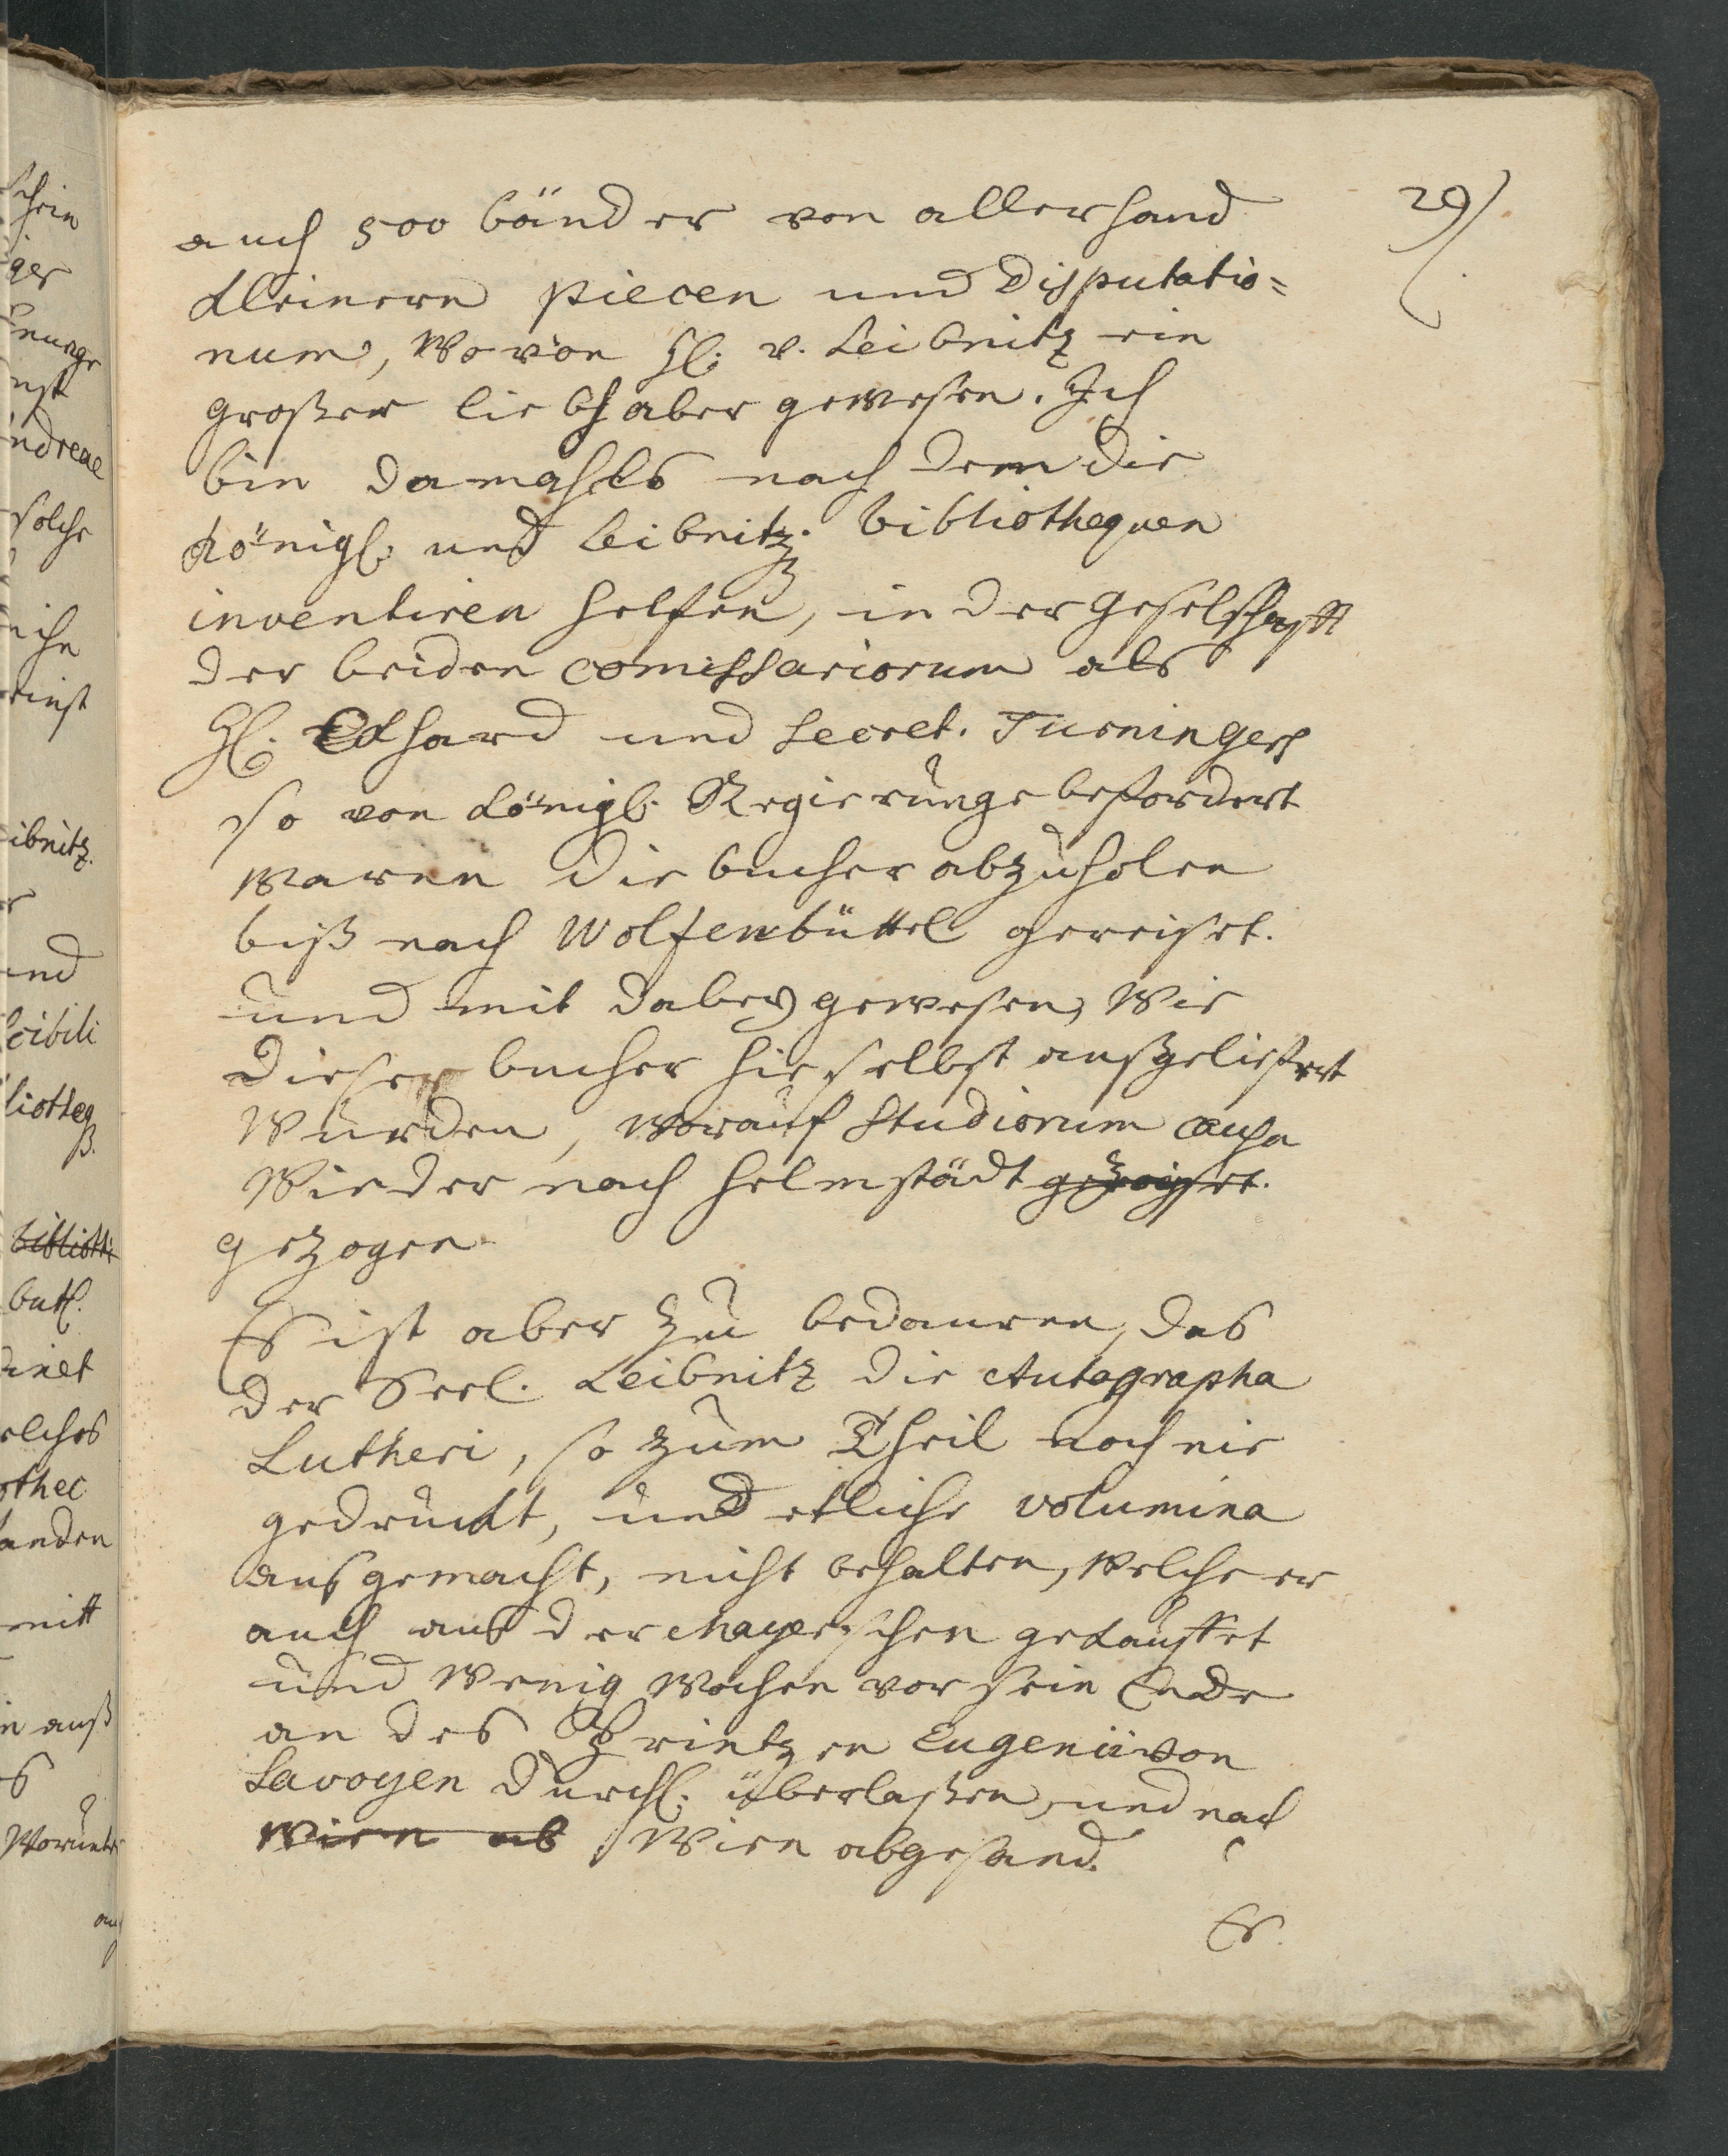 29
auch 500 bänder von allerhand
kleinern piecen und Disputatio=
num, wovon H. v. Leibnitz ein
großer liebhaber gewesen. Ich
bin damahls nach dem die
Königl. und Leibnitz. bibliothequen
inventiren helfen, in der geselschafft
der beiden comissariorum als
H. Eckhard und Secret.
so von Königl. Regierunge befordert
waren die bucher abzuholen
biß nach Wolfenbüttel gereiset.
und mit dabey gewesen, wie
dieser bucher hieselbst außgeliefert
wurden, worauf Studiorum causa
wieder nach Helmstädt gereiset.
gezogen.
Es ist aber zu bedauren, das
der Seel. Leibnitz die Autographa
Lutheri, so zum Theil noch nie
gedruckt, und etliche volumina
ausgemacht, nicht behalten, welche er
auch aus der Mayerschen gekauffet
und wenig wochen vor sein Ende
an des Printzen Eugenii von
Savoyen Durchl. überlaßen, und nach
Wien ab Wien abgesand.
Es.